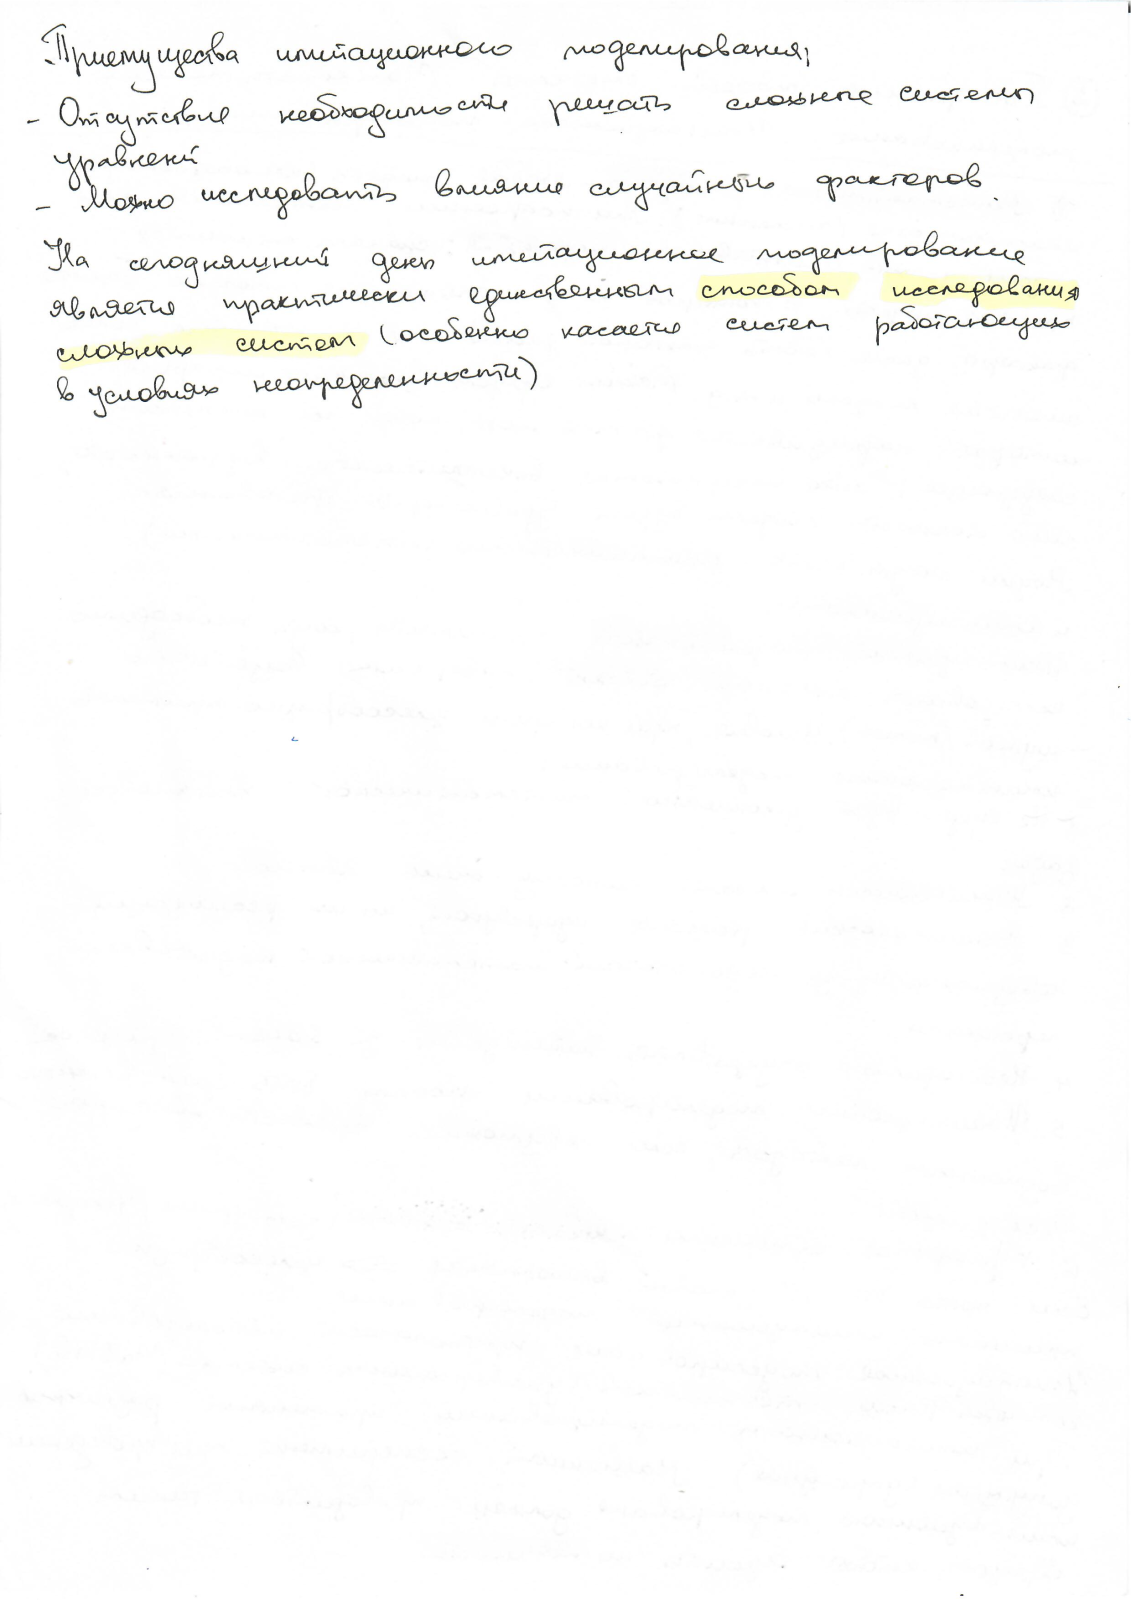 Приемущества имитационного моделирования;
- Отсутствие необходимости решать сложные системы
уравнений
- Можно исследовать влияние случайных факторов.
На сегодняшний день имитационное моделирование
является практически единственным способом исследования
сложных систем (особенно касается систем работающих
в условиях неопределенности)